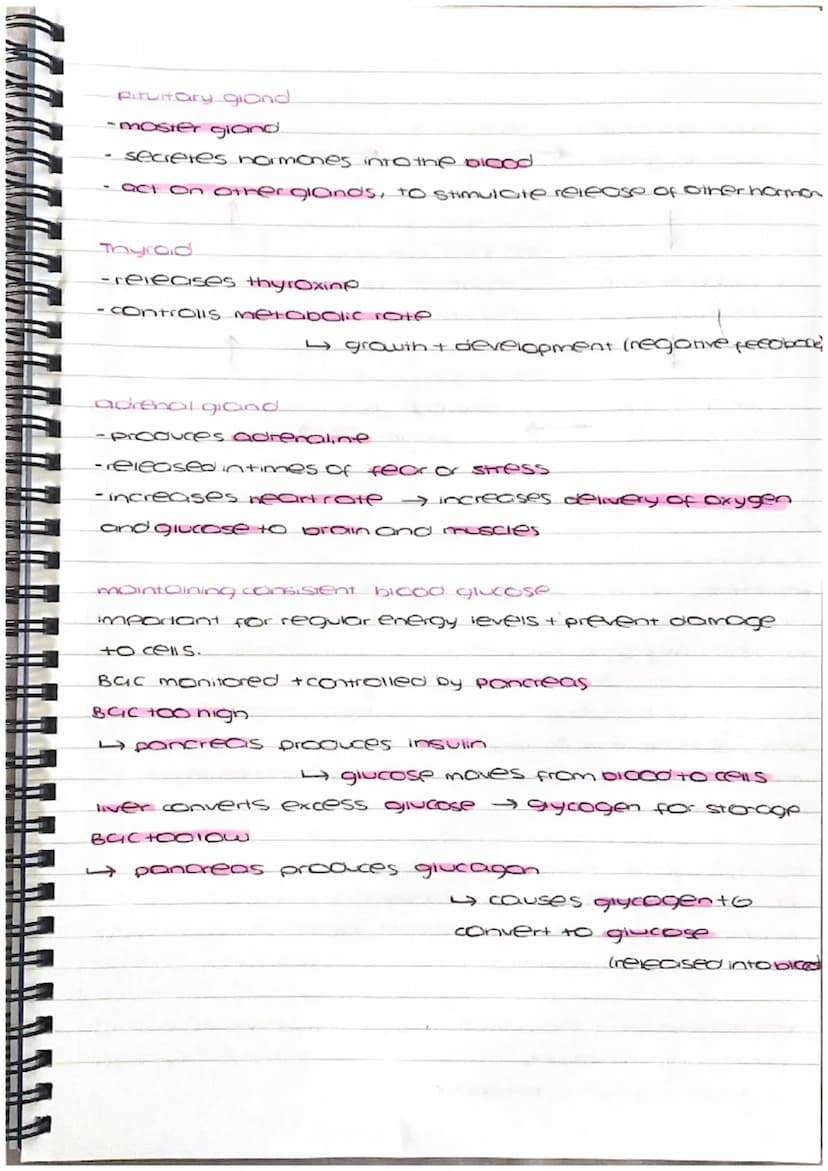 Pituitary gland
-master gland
- secretes hormones into the blood
- act on other glands, to stimulate release of other hormon
Thyroid
-releases thyroxine
-controlls metabolic rate
↳ growth + development (negative feedback)
adrenal gland
-produces adrenaline
-released in times of fear or stress
-increases heart rate → increases delivery of oxygen
and glucose to brain and muscles
maintaining consistent blood glucose
important for regular energy levels + prevent damage
to cells.
BGC monitored + controlled by pancreas
BGC too high
↳ pancreas produces insulin
↳ glucose moves from blood to cells
liver converts excess glucose → glycogen for storage
BGC too low
↳ pancreas produces glucagon
↳ causes glycogen to
convert to glucose
(released into blood